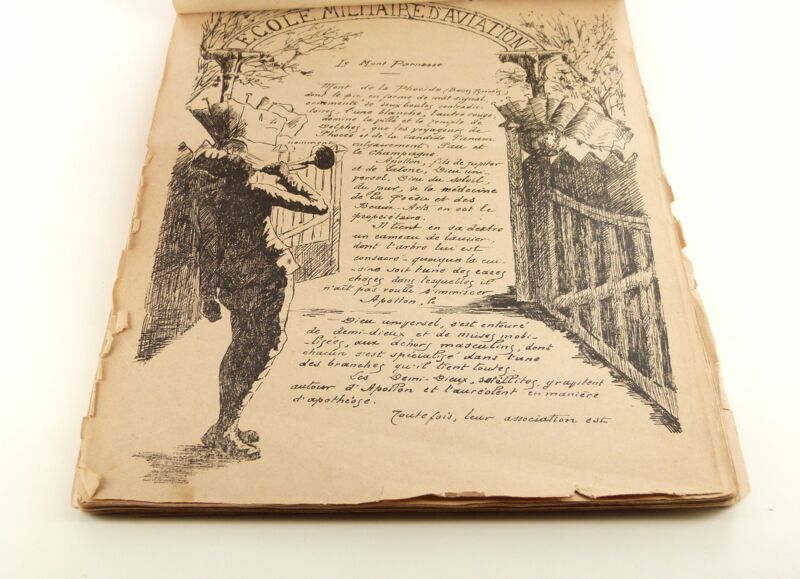 ECOLE MILITAIRE D'AVIATION
Le Mont Parnasse
Mont de la Phocide (Basses Pyrénées)
dont le pic en forme de mât signal,
ornementé de deux boules contradic-
toires, l'une blanche, l'autre rouge,
domine la ville et le temple de
Delphes, que les voyageurs de
Phocée et de la Candide
nomment vulgairement Pau et
le Champagne.
Apollon, fils de Jupiter
et de Latone, Dieu uni-
versel. Dieu du soleil
du jour, de la médecine
de la Poésie et des
Beaux-Arts en est le
propriétaire.
Il tient en sa dextre
un rameau de laurier,
dont l'arbre lui est
consacré - quoique la cui-
-sine soit l'une des rares
choses dans lesquelles il
n'ait pas voulu s'immiscer
Apollon, le
Dieu universel, s'est entouré
de demi-dieux et de muses mobi-
-lisées, aux dehors masculins, dont
chacun s'est spécialisé dans l'une
des branches qu'il tient toutes.
Les Demi-Dieux, satellites, gravitent
autour d'Apollon et l'auréolent en manière
d'apothéose.
Toutefois, leur association est